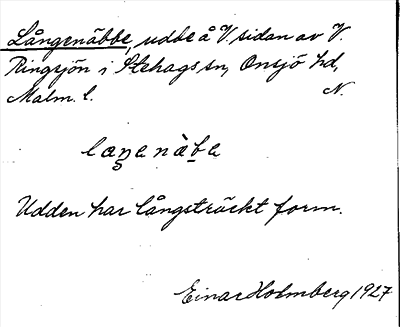 Långenäbbe, udde å V. sidan av V.
Ringsjön i Stehags sn, Onsjö hd,
Malm. l. N.
laŋenàbe
Udden har långsträckt form.
Einar Holmberg 1927